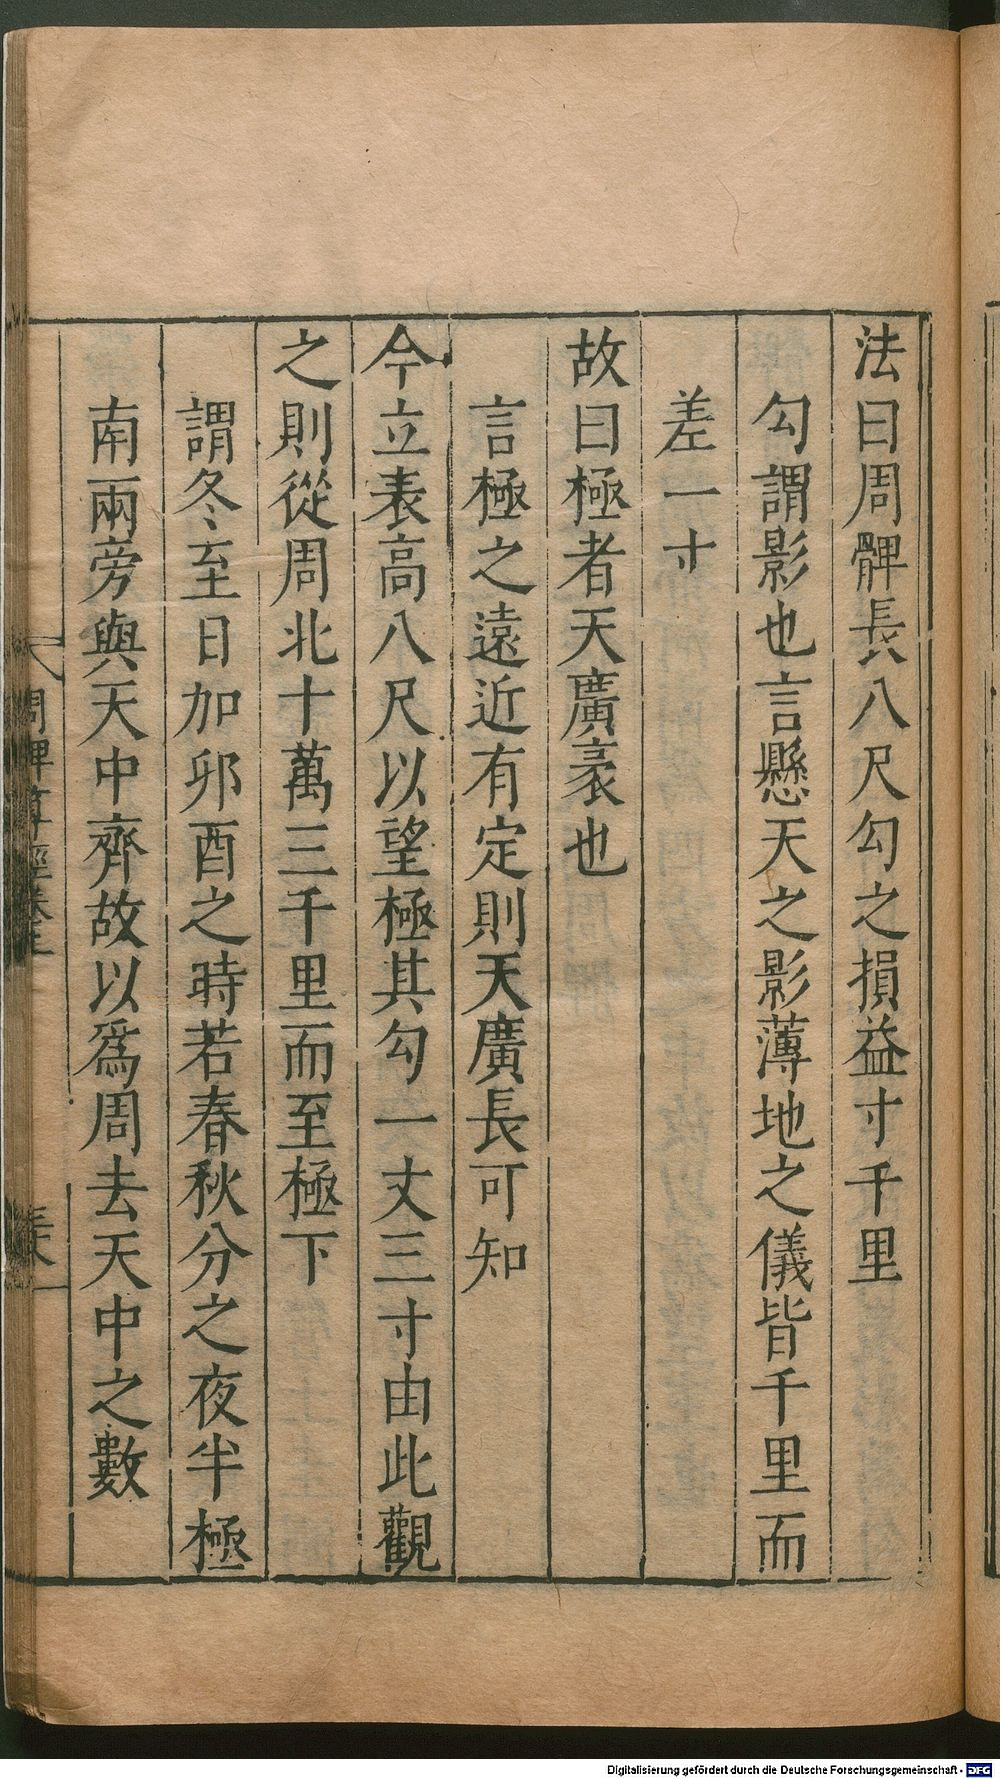 法曰周髀長八尺勾之損益寸千里
勾謂影也言懸天之影薄地之儀皆千里而
差一寸
故曰極者天廣袤也
言極之遠近有定則天廣長可知
今立表高八尺以望極其勾一丈三寸由此觀
之則從周北十萬三千里而至極下
謂冬至日加卯酉之時若春秋分之夜半極
南兩旁與天中齊故以爲周去天中之數
周髀算經卷上
Digitalisierung gefördert durch die Deutsche Forschungsgemeinschaft - DFG